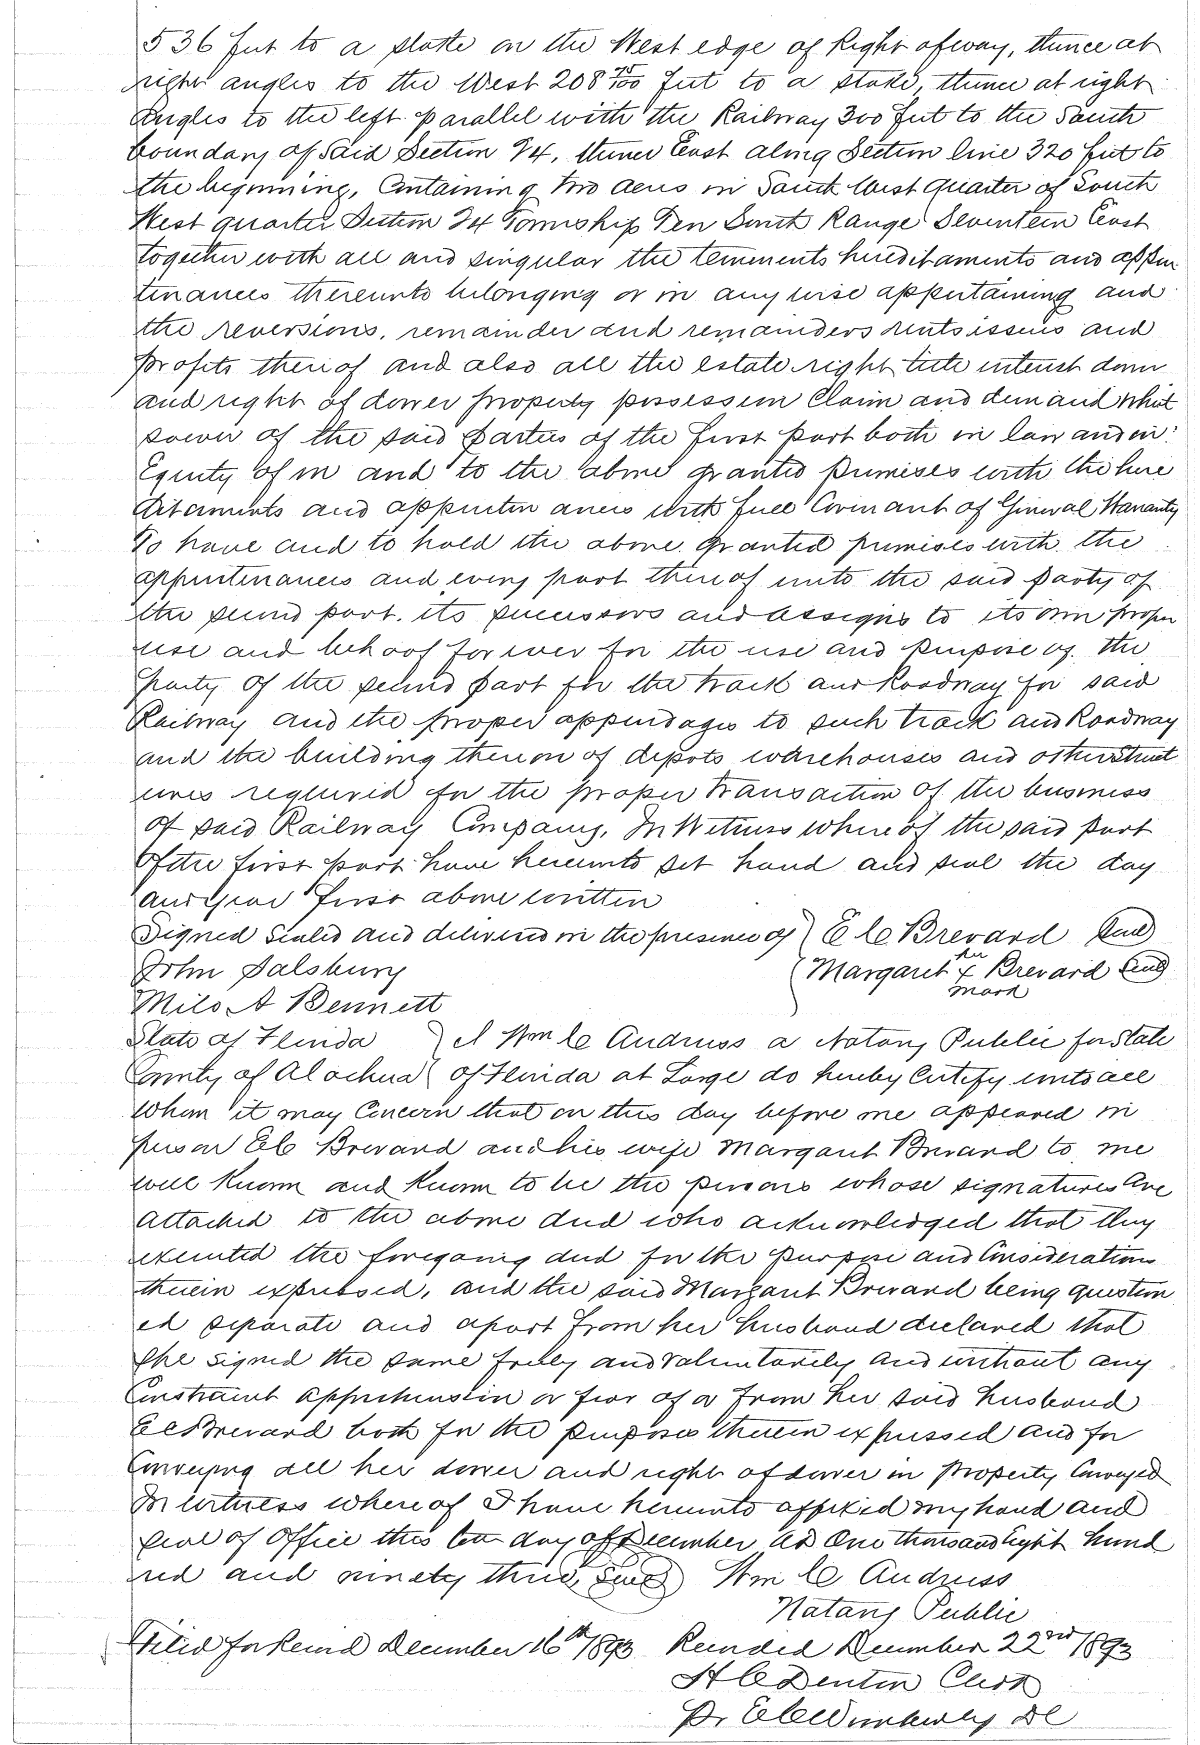 536 feet to a stake on the West edge of Right of way, thence at
right angles to the West 208 75/100 feet to a stake, thence at right
angles to the left parallel with the Railway 300 feet to the South
boundary of Said Section 24, thence East along Section line 320 feet to
the beginning, Containing two acres in South West quarter of South
West quarter Section 24 Township Ten South Range Seventeen East
together with all and singular the tenements hereditaments and appur
tenances thereunto belonging or in any wise appertaining and
the reversions, remainder and remainders rents issues and
profits thereof and also all the estate right title interest dower
and right of dower property possession Claim and demand what
soever of the said parties of the first part both in law and in
Equity of in and to the above granted premises with the here
ditaments and appurtenances with full Covenant of General Warranty
To have and to hold the above granted premises with the
appurtenances and every part thereof unto the said party of
the second part, its successors and assigns to its own proper
use and behoof forever for the use and purpose of the
party of the second part for the track and Roadway for said
Railway and the proper appendages to such track and Roadway
and the building thereon of depots warehouses and other struct
ures required for the proper transaction of the business
of said Railway Company. In Witness whereof the said part
of the first part have hereunto set hand and seal the day
and year first above written
Signed Sealed and delivered in the presence of } E C Brevard Seal
John Salsbury Margaret her x mark Brevard Seal
Milo A Bennett
State of Florida } I Wm C Andruss a Notary Public for State
County of Alachua } of Florida at Large do hereby Certify unto all
Whom it may Concern that on this day before me appeared in
person E C Brevard and his wife Margaret Brevard to me
well Known and Known to be the persons whose signatures are
attached to the above deed who acknowledged that they
executed the foregoing deed for the purpose and Consideration
therein expressed, and the said Margaret Brevard being question
ed separate and apart from her husband declared that
She signed the same freely and voluntarily and without any
Constraint apprehension or fear of or from her said husband
E C Brevard both for the purposes therein expressed and for
Conveying all her dower and right of dower in property Conveyed
In witness whereof I have hereunto affixed my hand and
seal of Office this day of December AD One thousand Eight hund
red and ninety three Seal Wm C Andruss
Notary Public
Filed for Record December 16th 1893 Recorded December 22nd 1893
H C Denton Clerk
Pr E C Wimberly DC